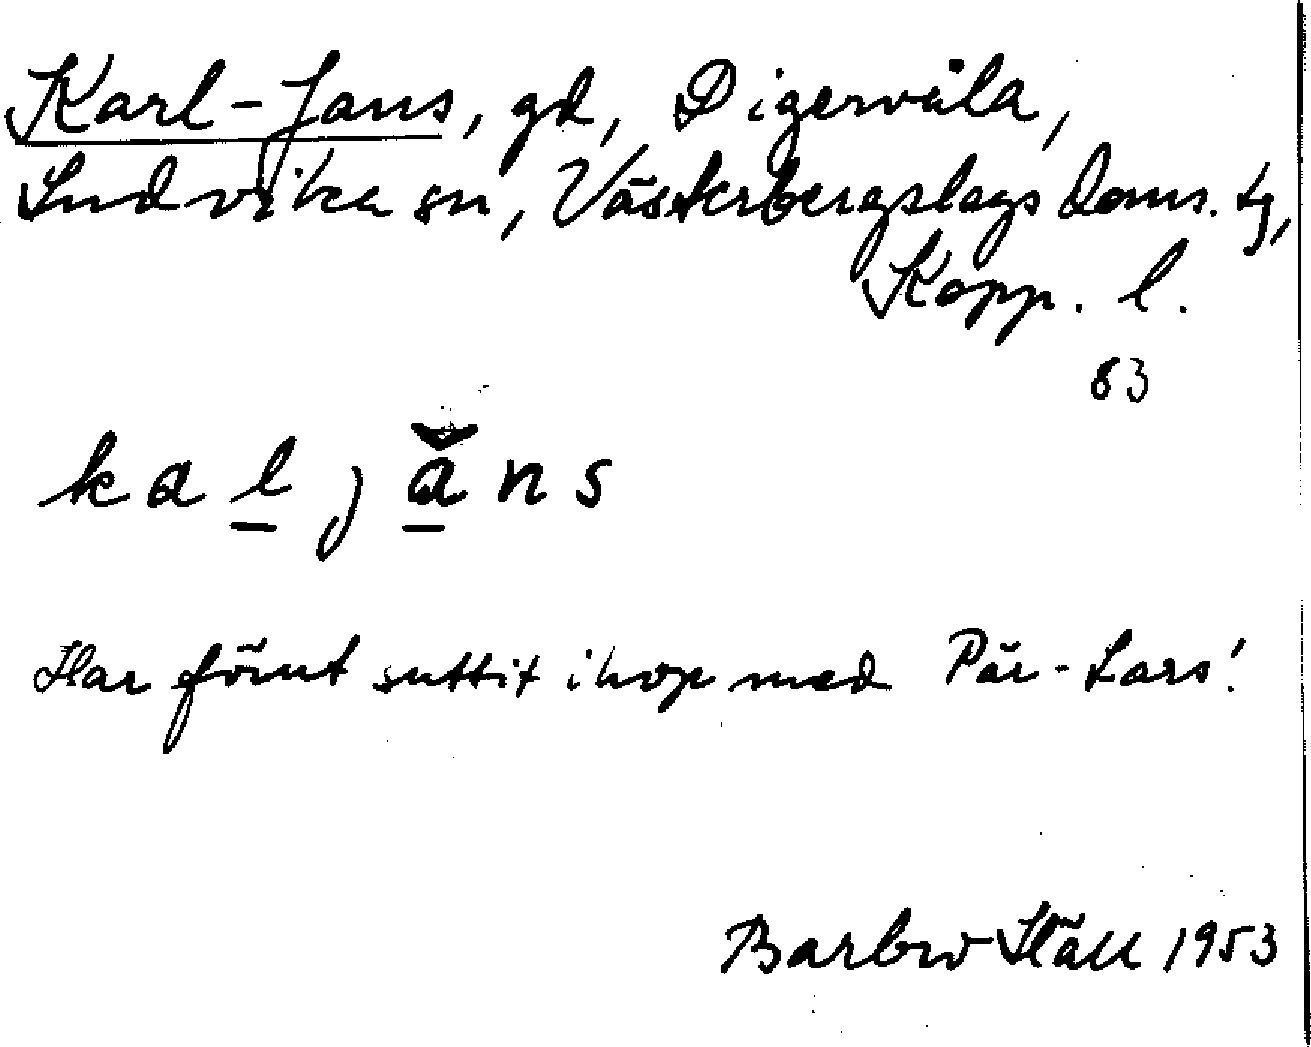 Karl-Jans, gd, Digerväla,
Ludvika sn, Västerbergslags doms. tg,
Kopp. l.
83
kal j ǎns
Har förut suttit ihop med Pär-Lars!
Barbro Ställ 1953